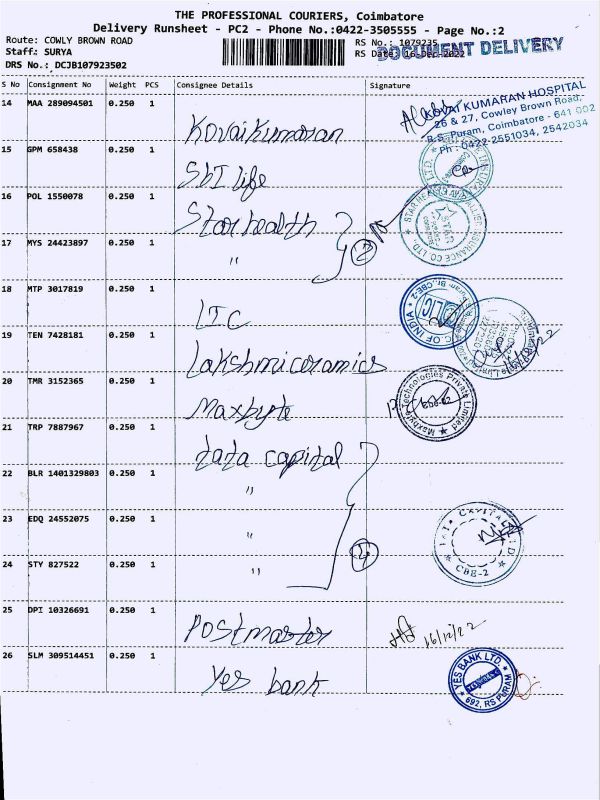 THE PROFESSIONAL COURIERS, Coimbatore
Delivery Runsheet - PC2 - Phone No.:0422-3505555 - Page No.:2
Route: COWLY BROWN ROAD
Staff: SURYA
DRS No.: DCJB107923502
RS No.: 1079235
RS Date: 16-Dec-2022
DOCUMENT DELIVERY
S No Consignment No Weight PCS Consignee Details Signature
14 MAA 289094501 0.250 1 Kovaikumaran
KOVAI KUMARAN HOSPITAL
26 & 27, Cowley Brown Road,
R.S. Puram, Coimbatore - 641 002
Ph : 0422-2551034, 2542034
15 GPM 658438 0.250 1 SbI life
16 POL 1550078 0.250 1 Star health
17 MYS 24423897 0.250 1 "
2
STAR HEALTH INSURANCE CO LTD.
18 MTP 3017819 0.250 1 LIC
LIC OF INDIA CBE-2
19 TEN 7428181 0.250 1 Lakshmiceramics
20 TMR 3152365 0.250 1 Maxbyte
Maxbyte Technologies Private Limited
21 TRP 7887967 0.250 1 tata capital
22 BLR 1401329803 0.250 1 "
23 EDQ 24552075 0.250 1 "
24 STY 827522 0.250 1 "
4
CBE-2
25 DPI 10326691 0.250 1 Postmaster
16/12/22
26 SLM 309514451 0.250 1 Yes bank
YES BANK LTD.
692, RS PURAM